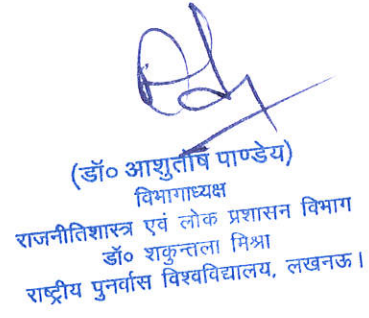 (डॉ० आशुतोष पाण्डेय)
विभागाध्यक्ष
राजनीतिशास्त्र एवं लोक प्रशासन विभाग
डॉ० शकुन्तला मिश्रा
राष्ट्रीय पुनर्वास विश्वविद्यालय, लखनऊ।